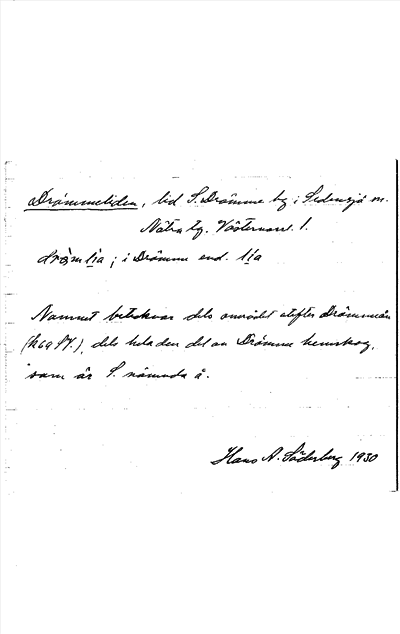 Drömmeliden, lid S. Drömme by i Sidensjö sn.
Nätra tg. Västernorrl. l.
i Drömme end. lia
Namnet betecknar dels området utefter Drömmeån
dels hela den del av Drömme hemskog,
som är S. nämnda å.
Hans A. Söderberg 1930